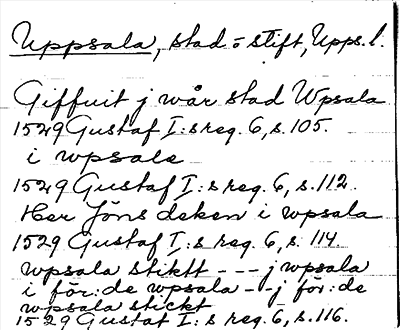 Uppsala, stad o stift, Upps.l.
Giffuit j wår stad Wpsala
1529 Gustaf I:s reg. 6, s. 105.
i wpsale
1529 Gustaf I:s reg. 6, s. 112.
Her Jöns deken i wpsala
1529 Gustaf I:s reg. 6, s. 114.
wpsala stiktt --- j wpsala
i för:de wpsala -- j för:de
wpsala stickt
1529 Gustaf I:s reg. 6, s. 116.